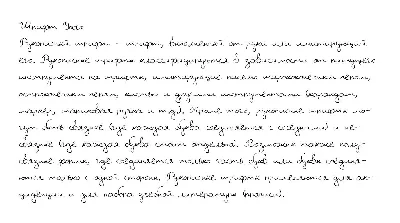 Шрифт
Рукописный шрифт - шрифт, выполненный от руки или имитирующий
его. Рукописные шрифты классифицируются в зависимости от пишущего
инструмента на шрифты, имитирующие письмо ширококонечным пером,
остроконечным пером, кистью и другими инструментами (карандаш,
маркер, шариковая ручка и т.д.). Кроме того, рукописные шрифты мо-
гут быть связные (где каждая буква соединяется с соседними) и не-
связные (где каждая буква стоит отдельно). Возможен также полу-
связный, где соединяется только часть букв или буквы соединя-
ются только с одной стороны. Рукописные шрифты применяются для ак-
циденции и для набора учебной, литературы